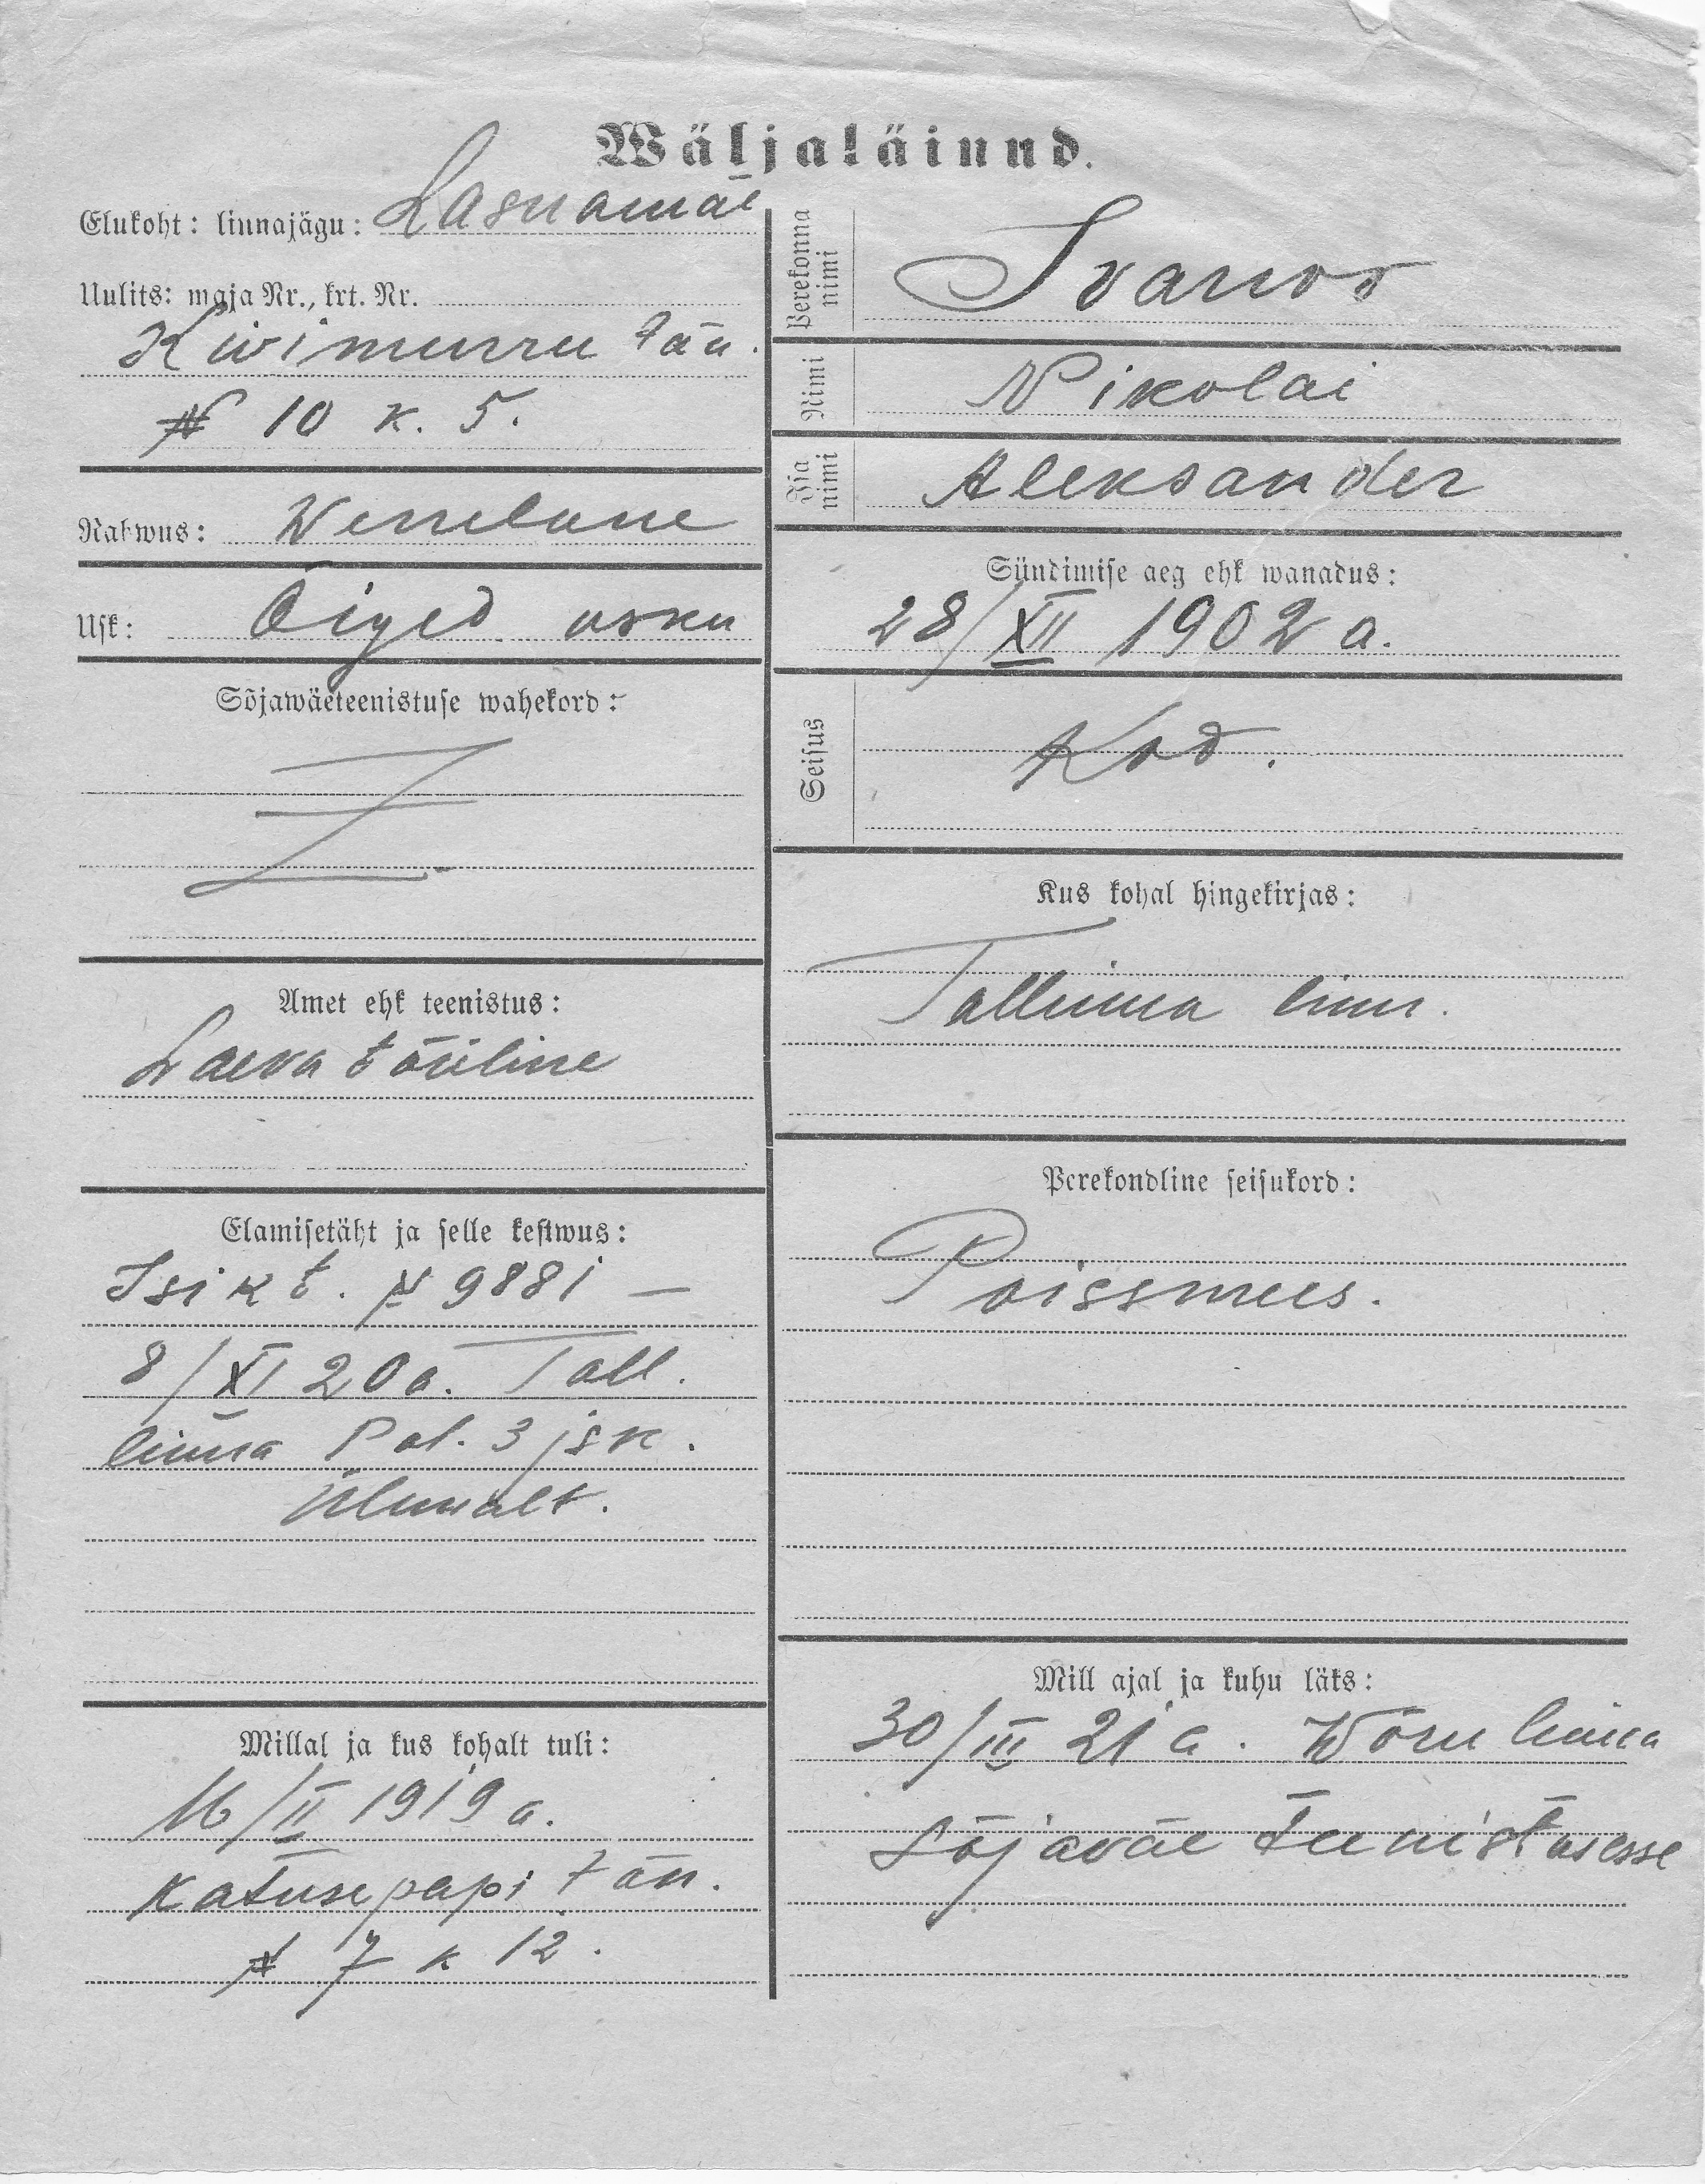 Wäljaläinud.
Elukoht: linnajägu: Lasnamäe
Uulits: maja Nr., krt. Nr.
Kivimurru tän.
№ 10 k. 5.
Rahwus: Wenelane
Usk: Õiged usku
Sõjawäeteenistuse wahekord:
Amet ehk teenistus:
Laeva tööline
Elamisetäht ja selle kestwus:
Isikt. № 9881 —
8/XI 20 a. Tall.
linna Pol. 3 jsk.
Ülemalt.
Millal ja kus kohalt tuli:
16/II 1919 a.
Katusepapi tän.
№ 7 k 12.
Perekonna
nimi
Ivanov
Nimi
Nikolai
Isa
nimi
Aleksander
Sündimise aeg ehk wanadus:
28/XII 1902 a.
Seisus
Kod.
Kus kohal hingekirjas:
Tallinna linn.
Perekondline seisukord:
Poissmees.
Mill ajal ja kuhu läks:
30/III 21 a. Wõru linna
Sõjaväe teenistusesse